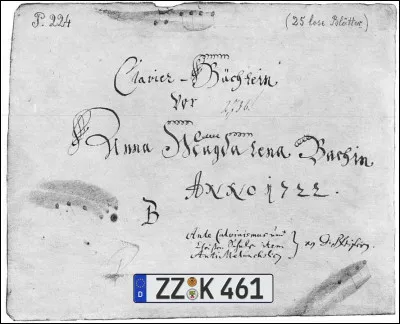 P. 224
(25 lose Blätter)
Clavier-Büchlein
vor
Anna Magdalena Bachin
ANNO 1722.
B
Ante Calvinismus und
Anti Melancholicus
D
ZZ K 461